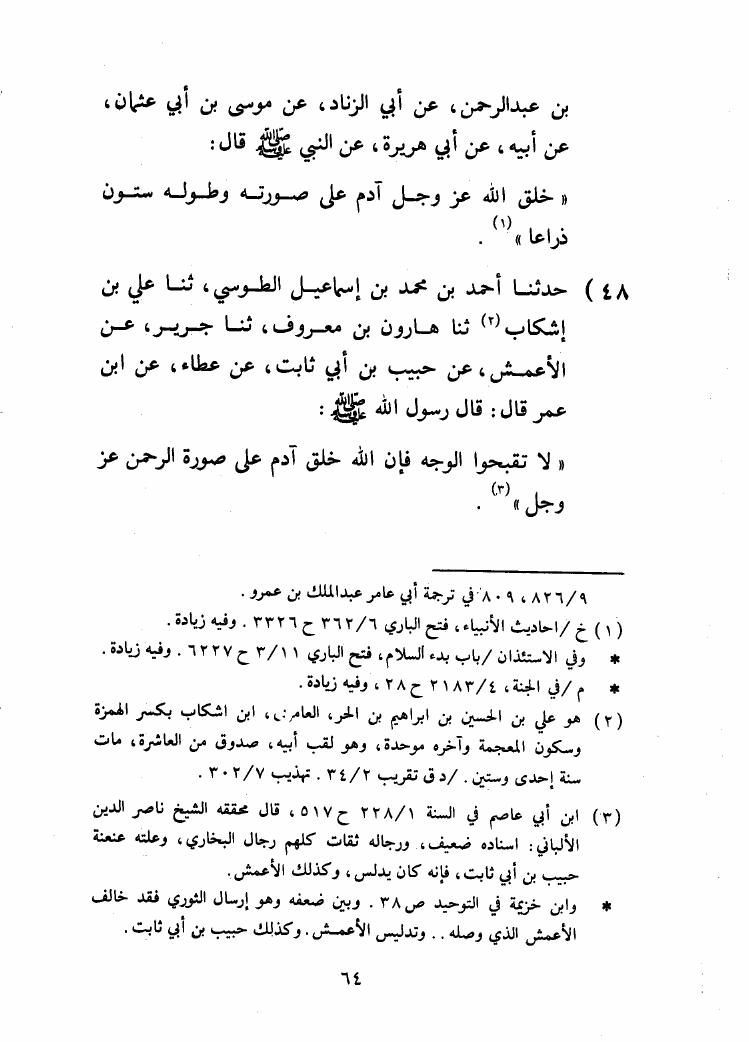 بن عبدالرحمن، عن أبي الزناد، عن موسى بن أبي عثمان،
عن أبيه، عن أبي هريرة، عن النبي ﷺ قال:
« خلق الله عز وجل آدم على صورته وطوله ستون
ذراعا »(١) .
٤٨) حدثنا أحمد بن محمد بن إسماعيل الطوسي، ثنا علي بن
إشكاب(٢) ثنا هارون بن معروف، ثنا جرير، عن
الأعمش، عن حبيب بن أبي ثابت، عن عطاء، عن ابن
عمر قال: قال رسول الله ﷺ :
« لا تقبحوا الوجه فإن الله خلق آدم على صورة الرحمن عز
وجل »(٣) .
٨٢٦/٩، ٨٠٩ في ترجمة أبي عامر عبدالملك بن عمرو .
(١) خ /احاديث الأنبياء، فتح الباري ٣٦٢/٦ ح ٣٣٢٦ . وفيه زيادة.
* وفي الاستئذان /باب بدء السلام، فتح الباري ٣/١١ ح ٦٢٢٧ . وفيه زيادة.
* م /في الجنة، ٢١٨٣/٤ ح ٢٨، وفيه زيادة.
(٢) هو علي بن الحسين بن ابراهيم بن الحر، العامري، ابن اشكاب بكسر الهمزة
وسكون المعجمة وآخره موحدة، وهو لقب أبيه، صدوق من العاشرة، مات
سنة إحدى وستين. /د ق تقريب ٣٤/٢ . تهذيب ٣٠٢/٧ .
(٣) ابن أبي عاصم في السنة ٢٢٨/١ ح ٥١٧، قال محققه الشيخ ناصر الدين
الألباني: اسناده ضعيف، ورجاله ثقات كلهم رجال البخاري، وعلته عنعنة
حبيب بن أبي ثابت، فإنه كان يدلس، وكذلك الأعمش.
* وابن خزيمة في التوحيد ص ٣٨ . وبين ضعفه وهو إرسال الثوري فقد خالف
الأعمش الذي وصله . . وتدليس الأعمش. وكذلك حبيب بن أبي ثابت.
٦٤